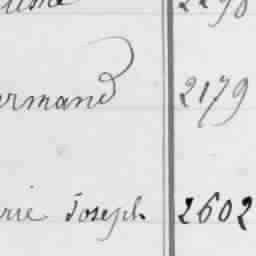 ermand 2179
rie Joseph 2602